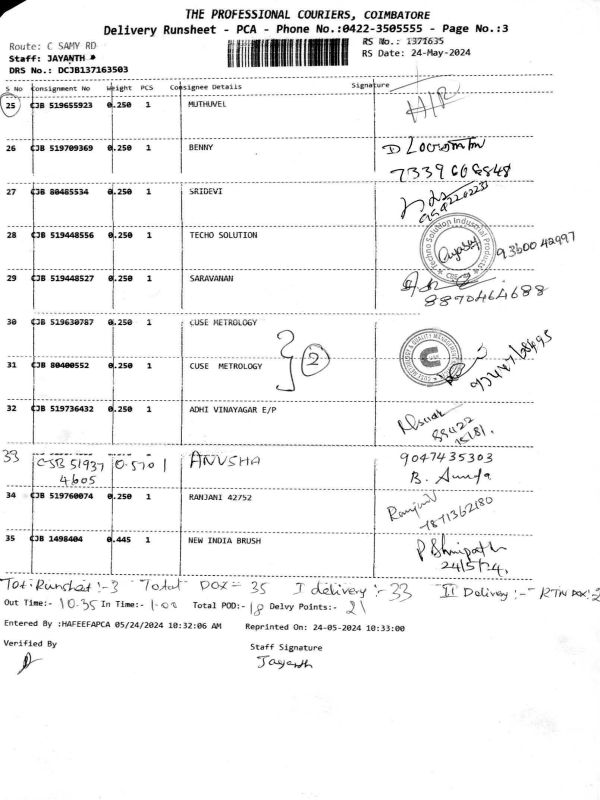 THE PROFESSIONAL COURIERS, COIMBATORE
Delivery Runsheet - PCA - Phone No.:0422-3505555 - Page No.:3
Route: C SAMY RD
RS No.: 1371635
Staff: JAYANTH
RS Date: 24-May-2024
DRS No.: DCJB137163503
S No Consignment No Weight PCS Consignee Details Signature
25 CJB 519655923 0.250 1 MUTHUVEL H/R
26 CJB 519709369 0.250 1 BENNY
7339608848
27 CJB 80485534 0.250 1 SRIDEVI
28 CJB 519448556 0.250 1 TECHO SOLUTION Techno Solution Industrial Products 9360042997
29 CJB 519448527 0.250 1 SARAVANAN
8870464688
30 CJB 519630787 0.250 1 CUSE METROLOGY
2
31 CJB 80400552 0.250 1 CUSE METROLOGY
32 CJB 519736432 0.250 1 ADHI VINAYAGAR E/P
33 CJB 51937 0.570 1 ANUSHA 9047435303
4605
34 CJB 519760074 0.250 1 RANJANI 42752 Ranjani
7871362180
35 CJB 1498404 0.445 1 NEW INDIA BRUSH
24/5/24.
Tot: Runsheet :- 3 Total DOX = 35 I delivery :- 33 II Delivery :- RTN DOX: 2
Out Time:- 10.35 In Time:- 1-00 Total POD:- 18 Delvy Points:- 21
Entered By :HAFEEFAPCA 05/24/2024 10:32:06 AM Reprinted On: 24-05-2024 10:33:00
Verified By
Staff Signature
Jayanth